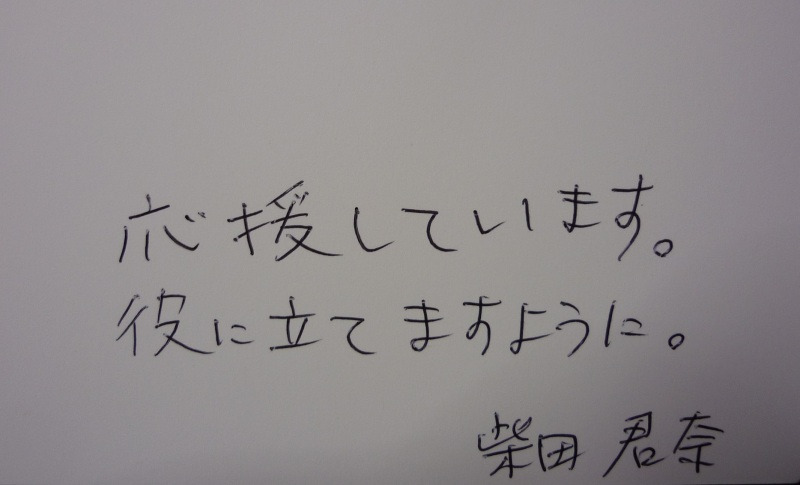 応援しています。
役に立てますように。
柴田 君奈